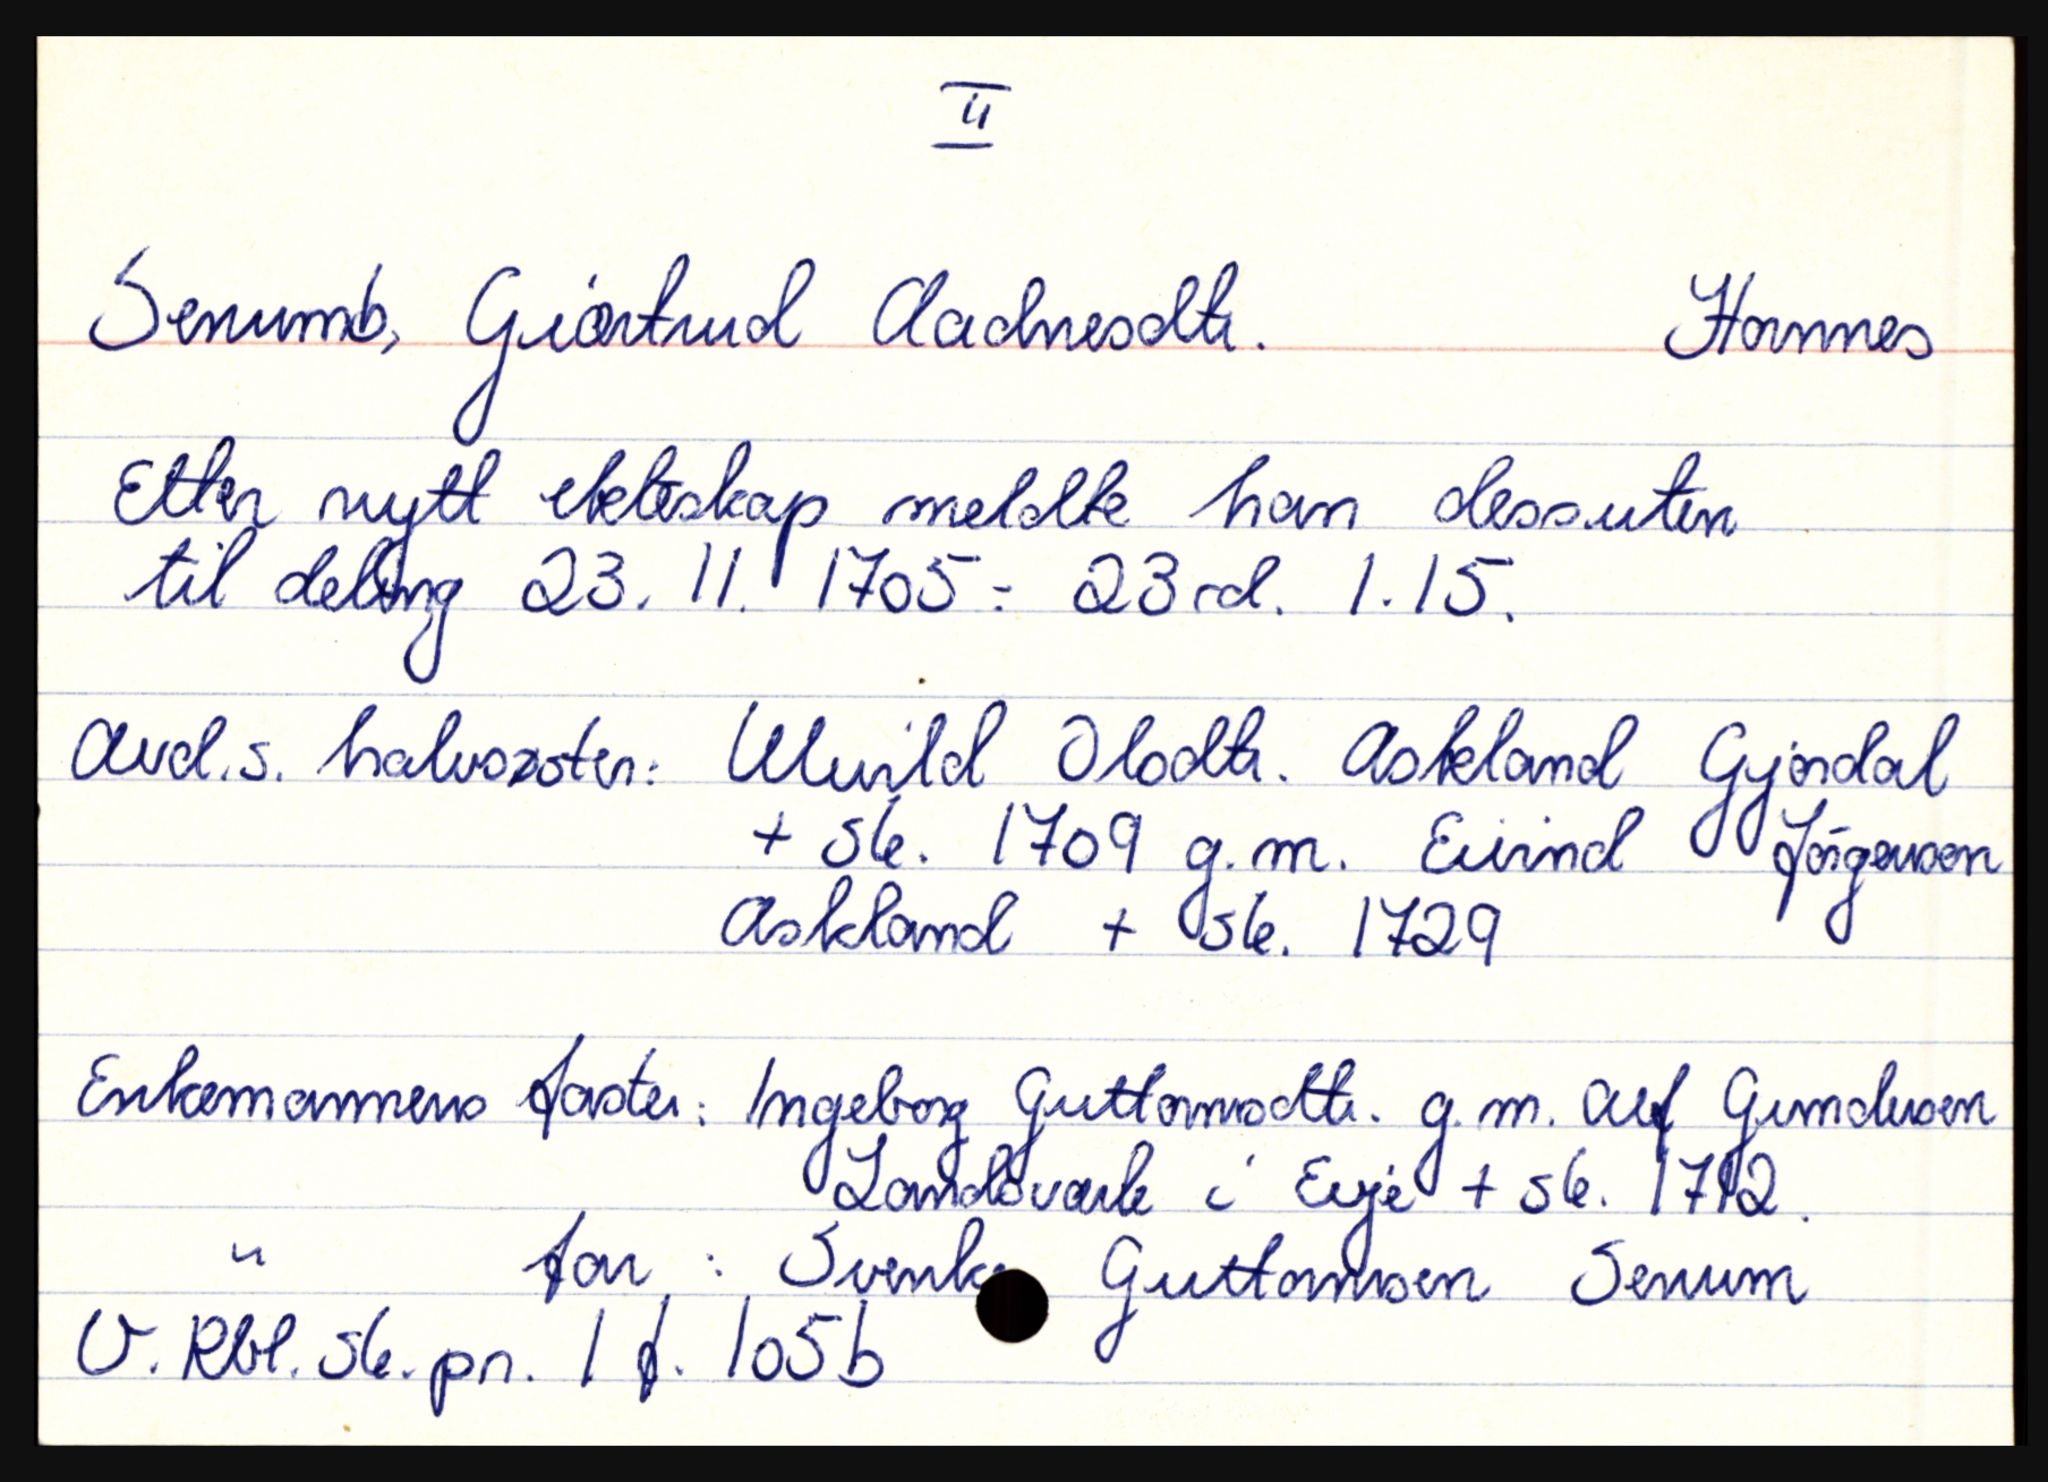 II
Senumb, Giørtrud Aadnesdtr. Hornnes
Etter nytt ekteskap meldte han dessuten
til deling 23. 11. 1705 : 23 rd. 1. 15.
Avd.s. halvsøster: Ulvild Olsdtr. Askland Gjørdal
+ sk. 1709 g.m. Eivind Jørgensen
Askland + sk. 1729
Enkemannens faster: Ingeborg Guttormsdtr. g.m. Alf Gundersen
Landsverk i Evje + sk. 1712.
" far : Svenke Guttormsen Senum
V. Rbl. sk. pr. 1 f. 105b